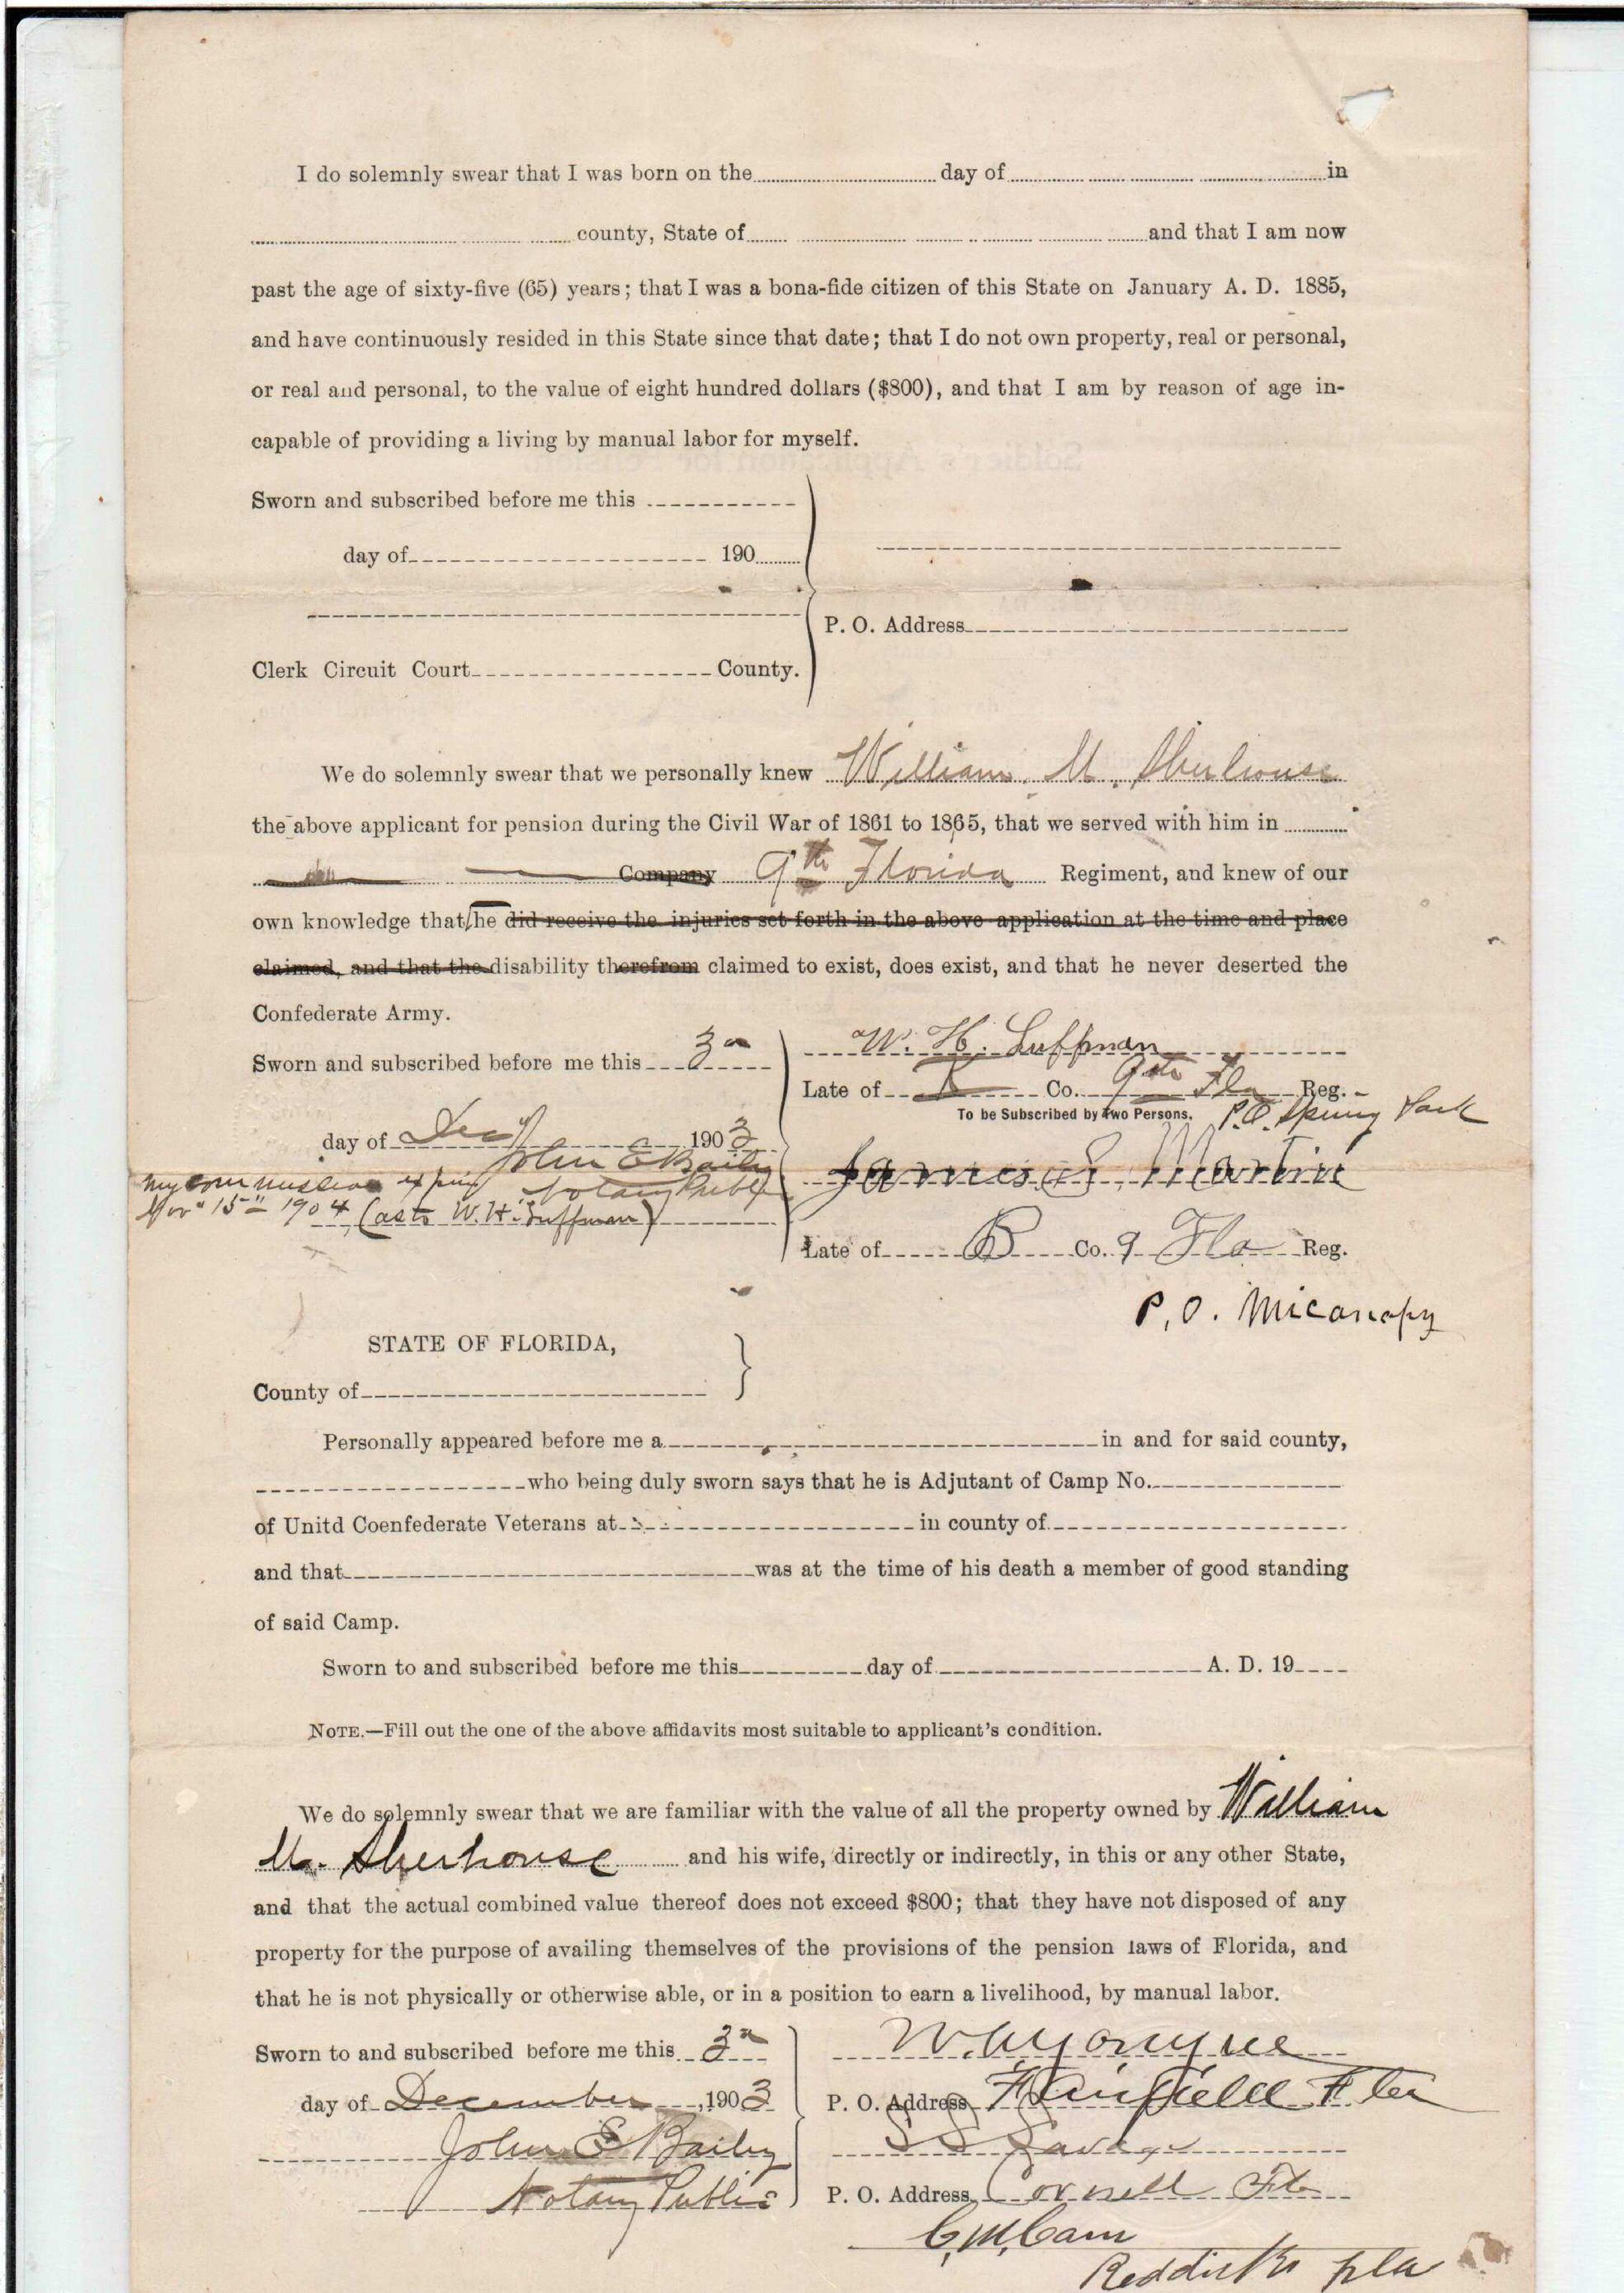 I do solemnly swear that I was born on the day of in
county, State of and that I am now
past the age of sixty-five (65) years; that I was a bona-fide citizen of this State on January A. D. 1885,
and have continuously resided in this State since that date; that I do not own property, real or personal,
or real and personal, to the value of eight hundred dollars ($800), and that I am by reason of age in-
capable of providing a living by manual labor for myself.
Sworn and subscribed before me this
day of 190
P. O. Address
Clerk Circuit Court County.
We do solemnly swear that we personally knew William M. Sherhouse
the above applicant for pension during the Civil War of 1861 to 1865, that we served with him in
Company 9th Florida Regiment, and knew of our
own knowledge that the did receive the injuries set forth in the above application at the time and place
claimed, and that the disability therefrom claimed to exist, does exist, and that he never deserted the
Confederate Army.
Sworn and subscribed before me this 3"
W. H. Luffman
Late of Co. 9th Fla Reg.
To be Subscribed by Two Persons. P.O. Spring Park
day of Dec 1903
John E Baily
Notary Public
my commission expires
Nov" 15" 1904 (as to W. H. Luffman)
James Martin
Late of B Co. 9 Fla Reg.
P. O. Micanopy
STATE OF FLORIDA,
County of
Personally appeared before me a in and for said county,
who being duly sworn says that he is Adjutant of Camp No.
of Unitd Coenfederate Veterans at in county of
and that was at the time of his death a member of good standing
of said Camp.
Sworn to and subscribed before me this day of A. D. 19
NOTE.—Fill out the one of the above affidavits most suitable to applicant's condition.
We do solemnly swear that we are familiar with the value of all the property owned by William
M. Sherhouse and his wife, directly or indirectly, in this or any other State,
and that the actual combined value thereof does not exceed $800; that they have not disposed of any
property for the purpose of availing themselves of the provisions of the pension laws of Florida, and
that he is not physically or otherwise able, or in a position to earn a livelihood, by manual labor.
Sworn to and subscribed before me this 3"
day of December, 1903
P. O. Address Fairfield Fla
John E Baily
S S Savage
Notary Public
P. O. Address Cornell Fla
C. M. Cam
Reddick Fla